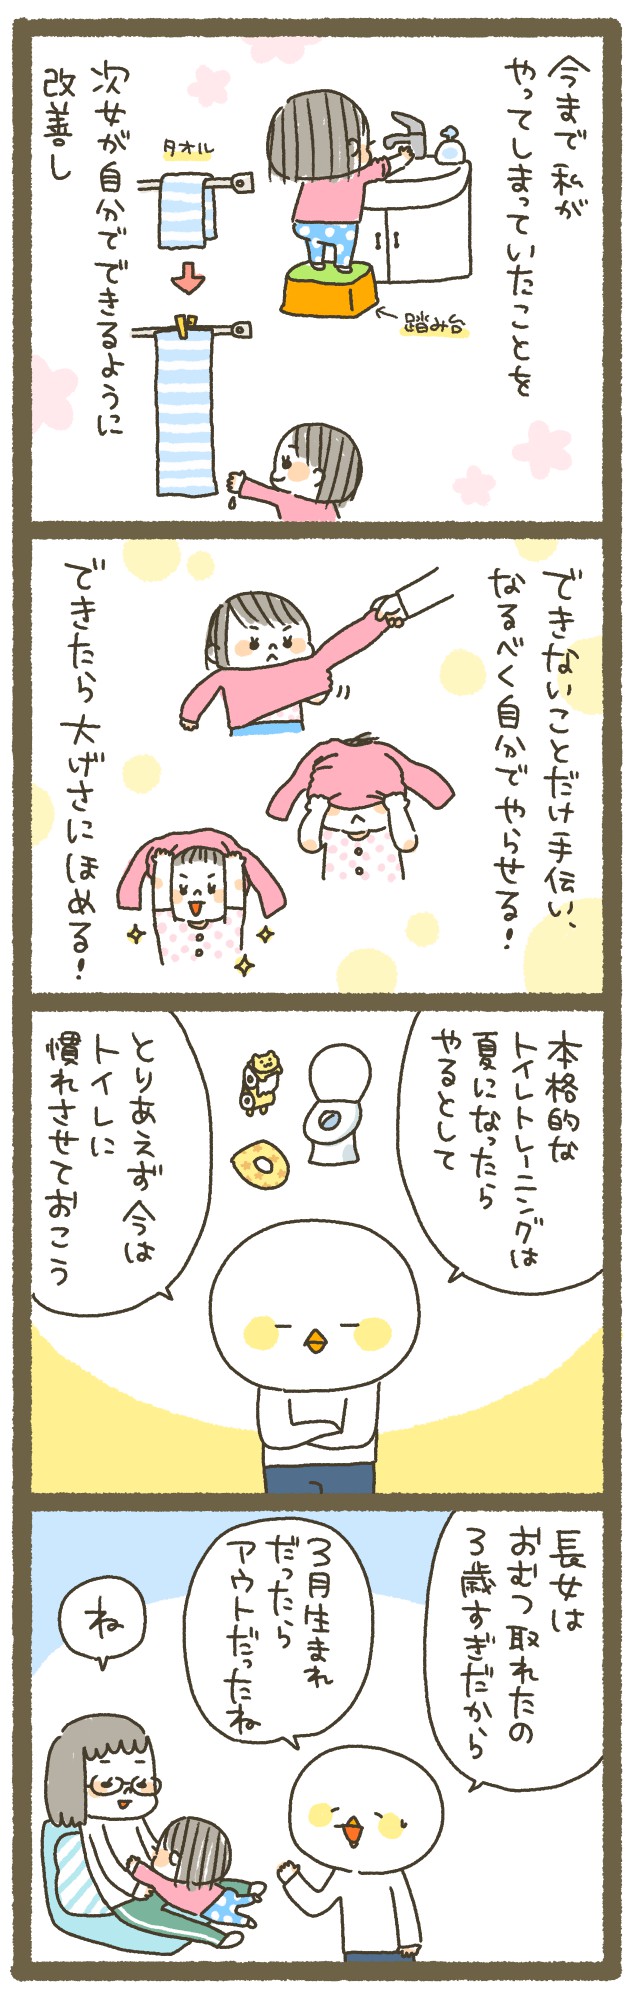 今まで私が
やってしまっていたことを
踏み台
タオル
次女が自分でできるように
改善し
できないことだけ手伝い、
なるべく自分でやらせる!
できたら大げさにほめる!
本格的な
トイレトレーニングは
夏になったら
やるとして
とりあえず今は
トイレに
慣れさせておこう
長女は
おむつ取れたの
3歳すぎだから
3月生まれ
だったら
アウトだったね
ね